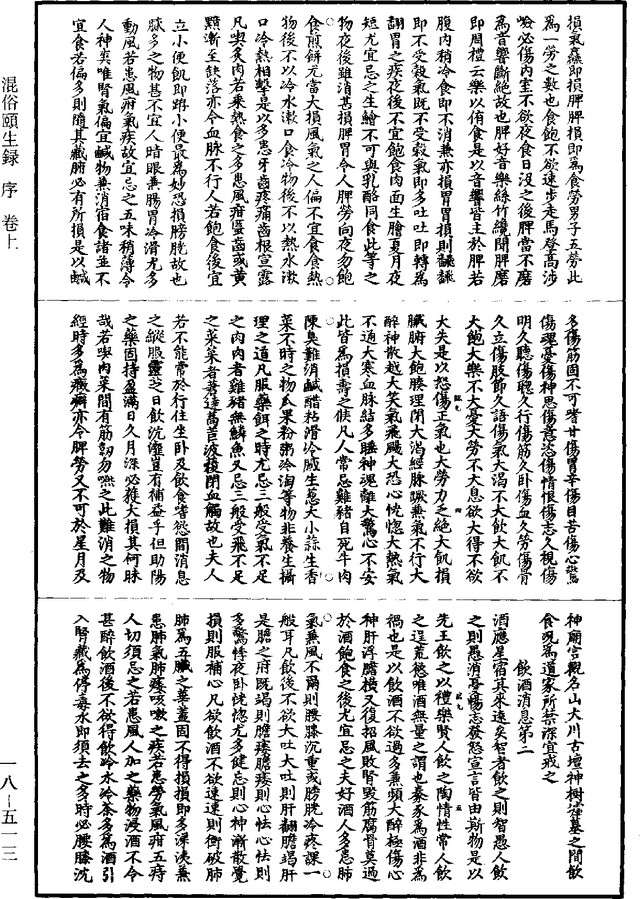 損氣蘊即損脾脾損即為食勞男子五勞此
為一勞之數也食飽不欲速步走馬登高涉
嶮必傷內室不欲夜食日沒之後脾當不磨
為音響斷絕故也脾好音樂絲竹纔聞脾磨
即周禮云樂以侑食是以音響皆主於脾若
腹內稍冷食即不消兼亦損胃胃損則
即不受穀氣既不受穀氣即多吐吐即轉為
翻胃之疾夜後不宜飽食肉面生膾夏月夜
短尤宜忌之生鱠不可與乳酪同食此等之
物夜後難消甚損脾胃令人脾勞向夜勿飽
食煎餅尤當大損風氣之人偏不宜食食熱
物後不以冷水漱口食冷物後不以熱水漱
口冷熱相擊是以多患牙齒疼痛齒根宣露
凡喫炙肉若乘熱食之多患風疳䘌齒或黃
黯漸至缺落亦令血脉不行人若飽食後宜
立小便飢即蹲小便最為妙恐損膀胱故也
膩多之物甚不宜人暗眼兼腸胃冷滑尤多
動風若患風疳氣疾故宜忌之五味稍薄令
人神爽唯腎氣偏宜鹹物兼消宿食諸並不
宜食若偏多則隨其臟腑必有所損是以鹹
多傷筋固不可嗜甘傷胃辛傷目苦傷心驚
傷魂憂傷神思傷意恐傷情恨傷志久視傷
明久聽傷聰久行傷筋久臥傷血久勞傷骨
久立傷肢節久語傷氣大渴不大飲大飢不
大飽大樂不大憂大勞不大息欲大得不欲
大失是以怨傷正氣也大勞力之絕大飢損
臟腑大飽腠理閉大渴經脉蹶兼氣不行大
醉神散越大笑氣飛颺大恐心恍惚大熱氣
不通大寒血脉結多睡神魂離大驚心不安
此皆為損壽之候凡人常忌雞豬自死牛肉
陳臭難消鹹醋粘滑冷膩生蔥大小蒜生香
菜不時之物瓜果粉粥冷淘等物非養生攝
理之道凡服藥餌之時尤忌三般受氣不足
之肉肉者雞豬無鱗魚又忌三般受飛不足
之菜菜者蓍薘萵苣波薐閉血觸故也夫人
若不能常於行住坐臥及飲食嗜慾間消息
之縱服靈芝日飲沆瀣豈有補益乎但助陽
之藥固持盈滿日久月深必雍大損其何昧
哉若喫肉菜間有筋韌勿嚥之此難消之物
經時多為癥癖亦令脾勞又不可於星月及
神廟宮觀名山大川古壇神樹塚墓之間飲
食況為道家所禁深宜戒之
飲酒消息第二
酒應星宿其來遠矣智者飲之則智愚人飲
之則愚消憂暢志發怒宣言皆由斯物是以
先王飲之以禮樂賢人飲之陶情性常人飲
之逞荒慾唯酒無量之謂也豢豕為酒非為
禍也是以飲酒不欲過多兼頻大醉極傷心
神肝浮膽橫又復招風敗腎毀筋腐骨莫過
於酒飽食之後尤宜忌之夫好酒人多患肺
氣兼風不爾則腰膝沉重或膀胱冷疼課一
般耳凡飲後不欲大吐大吐則肝翻膽竭肝
是膽之府既竭則膽痿膽痿則心怯心怯則
多驚悸夜臥恍惚尤多健忘則心神漸散覺
損則服補心凡欲飲酒不欲速速則衝破肺
肺為五臟之華蓋固不得損損即多涕淚兼
患肺氣肺痿咳嗽之疾若患勞氣風疳五痔
人切須忌之若患風人加之藥物浸酒不令
甚醉飲酒後不欲得飲冷水冷茶多為酒引
入腎臟為停毒水即須去之多時必腰膝沉
混俗頤生錄 序 卷上
一八—五一三